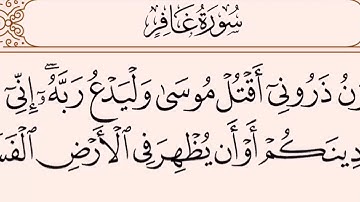 سُورَةُ غَافِرٍ
ذَرُونِيٓ أَقۡتُلۡ مُوسَىٰ وَلۡيَدۡعُ رَبَّهُۥٓۖ إِنِّيٓ
دِينَكُمۡ أَوۡ أَن يُظۡهِرَ فِي ٱلۡأَرۡضِ